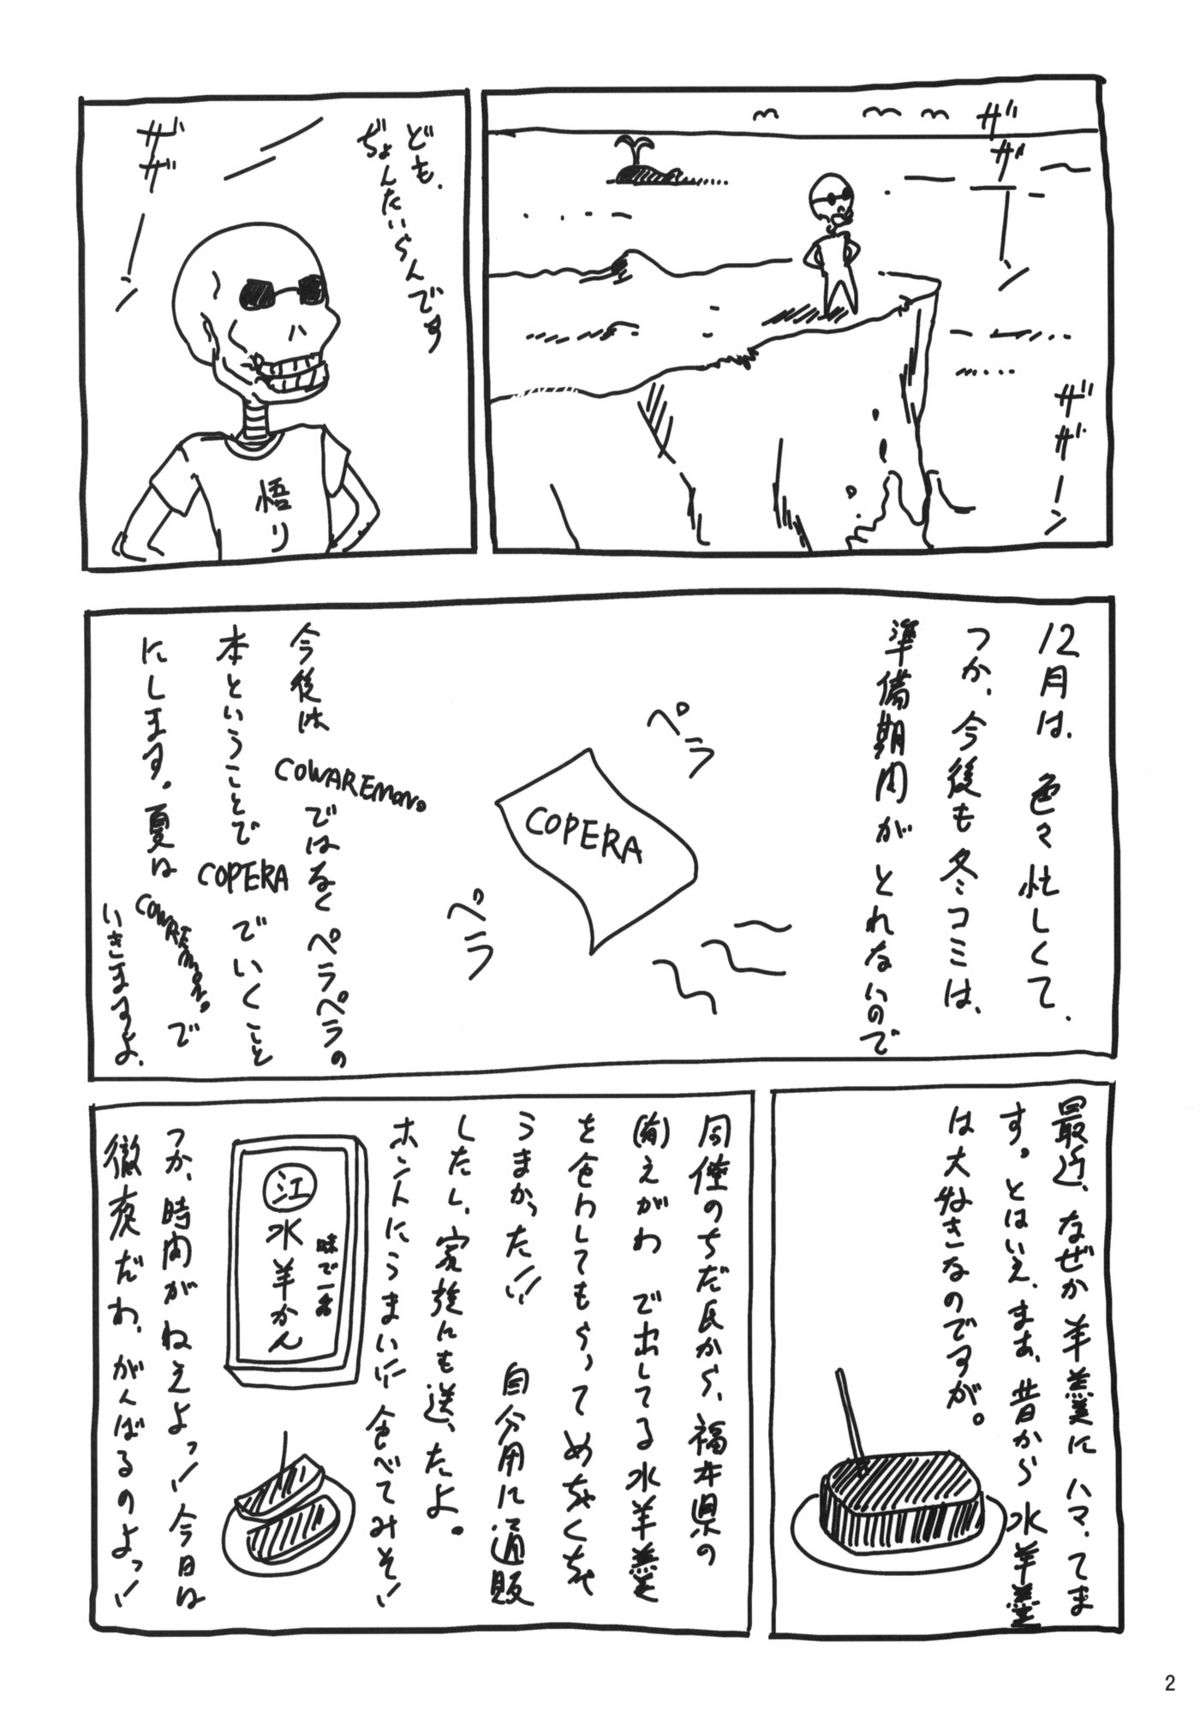 ザザーン
ザザーン
ども、
ぢょんたいらんです
ザザーン
悟り
12月は、色々忙しくて、
つか、今後も冬コミは、
準備期間がとれないので
ペラ
COPERA
ペラ
今後は COWAREmono。ではなくペラペラの
本ということで COPERA でいくこと
にします。夏は COWAREmono。で
いきますよ、
最近、なぜか羊羹にハマってま
す。とはいえ、まぁ、昔から水羊羹
は大好きなのですが。
同僚のちだ氏から、福井県の
(有)えがわ で出してる水羊羹
を食わしてもらってめちゃくちゃ
うまかった!! 自分用に通販
したし、家族にも送ったよ。
ホントにうまい!! 食べてみそ!
江
水羊かん
味で一番
つか、時間がねえよっ!! 今日は
徹夜だわ、がんばるのよっ!
2